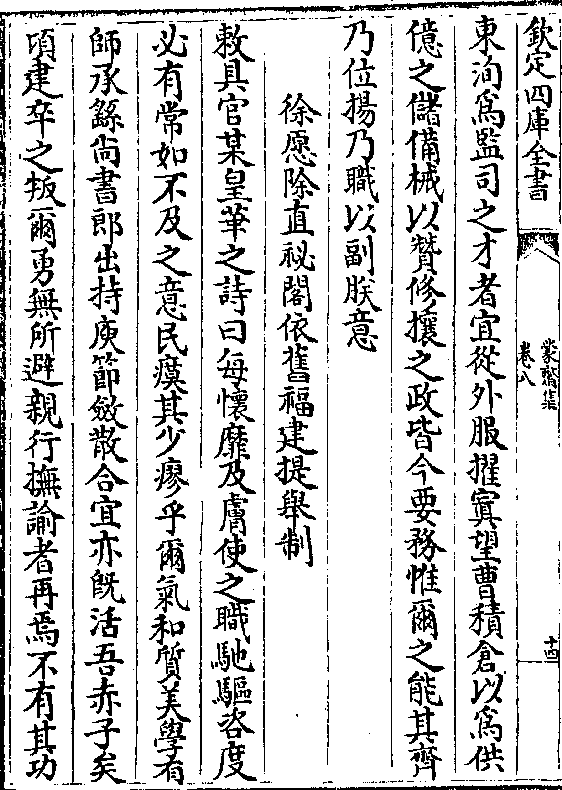 欽定四庫全書
蒙齋集
卷八
十四
東洵為監司之才者宜從外服擢寘望曹積倉以為供
億之儲備械以贊修攘之政皆今要務惟爾之能其齊
乃位揚乃職以副朕意
徐愿除直祕閣依舊福建提舉制
敕具官某皇華之詩曰每懷靡及膚使之職馳驅咨度
必有常如不及之意民瘼其少瘳乎爾氣和質美學有
師承繇尚書郎出持庾節斂散合宜亦旣活吾赤子矣
頃建卒之叛爾勇無所避親行撫諭者再焉不有其功